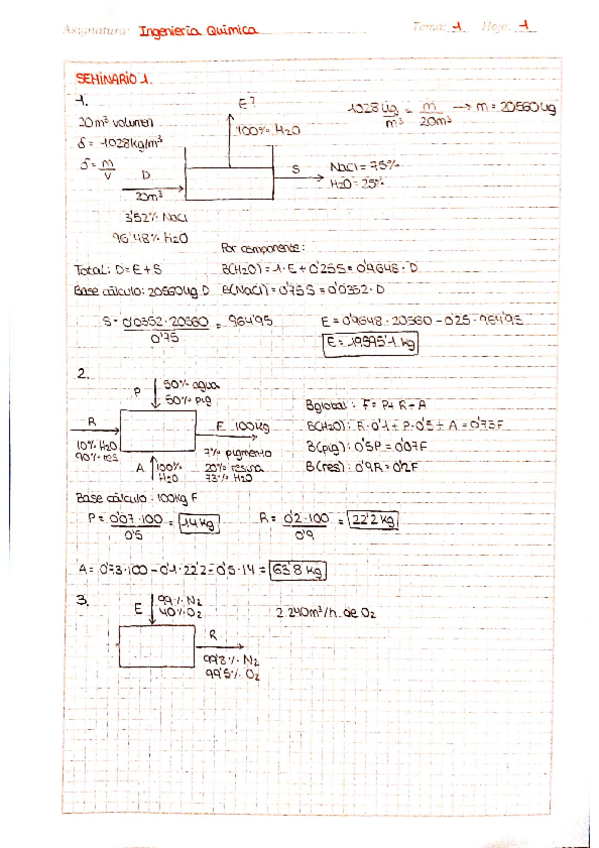 Asignatura: Ingeniería Química Tema: 1 Hoja: 1
SEMINARIO 1.
1.
20m³ volumen
δ = 1028kg/m³
δ = m/V
E?
100% H2O
D
20m³
3'52% NaCl
96'48% H2O
S
NaCl = 75%
H2O = 25%
1028 kg/m³ = m/20m³ → m = 20560kg
Por componente:
Total: D = E + S B(H2O) = 1·E + 0'25S = 0'9648·D
Base cálculo: 20560kg D B(NaCl) = 0'75S = 0'0352·D
S = 0'0352·20560/0'75 = 964'95 E = 0'9648·20560 - 0'25·964'95
E = 19595'1 kg
2.
P 50% agua
50% pig
R
10% H2O
90% res
F 100kg
7% pigmento
20% resina
73% H2O
A 100%
H2O
Bglobal: F = P + R + A
B(H2O): R·0'1 + P·0'5 + A = 0'73F
B(pig): 0'5P = 0'07F
B(res): 0'9R = 0'2F
Base cálculo: 100kg F
P = 0'07·100/0'5 = 14 kg R = 0'2·100/0'9 = 22'2 kg
A = 0'73·100 - 0'1·22'2 - 0'5·14 = 63'8 kg
3.
E
40% O2
2 240m³/h de O2
R
99'8% N2
99'5% O2